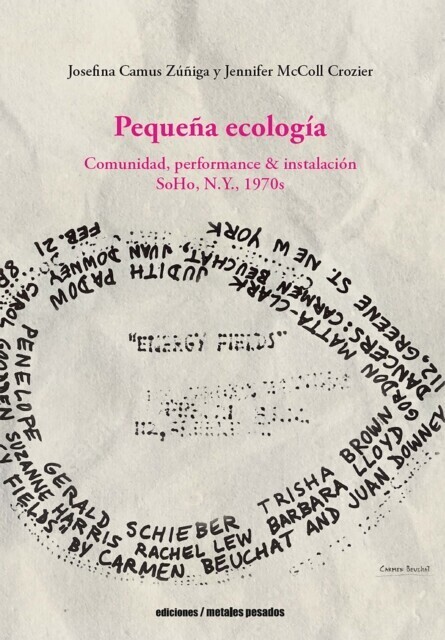 Josefina Camus Zúñiga y Jennifer McColl Crozier
Pequeña ecología
Comunidad, performance & instalación
SoHo, N.Y., 1970s
FIELDS" BY CARMEN BEUCHAT AND JUAN DOWNEY
112, GREENE ST. NEW YORK
FEB. 21
DANCERS: CARMEN BEUCHAT, JUAN DOWNEY,
CAROL GOODDEN
SUZANNE HARRIS RACHEL LEW BARBARA LLOYD GORDON MATTA-CLARK
JUDITH PADOW
PENELOPE
GERALD SCHIEBER TRISHA BROWN
"ENERGY FIELDS"
CARMEN BEUCHAT
ediciones / metales pesados